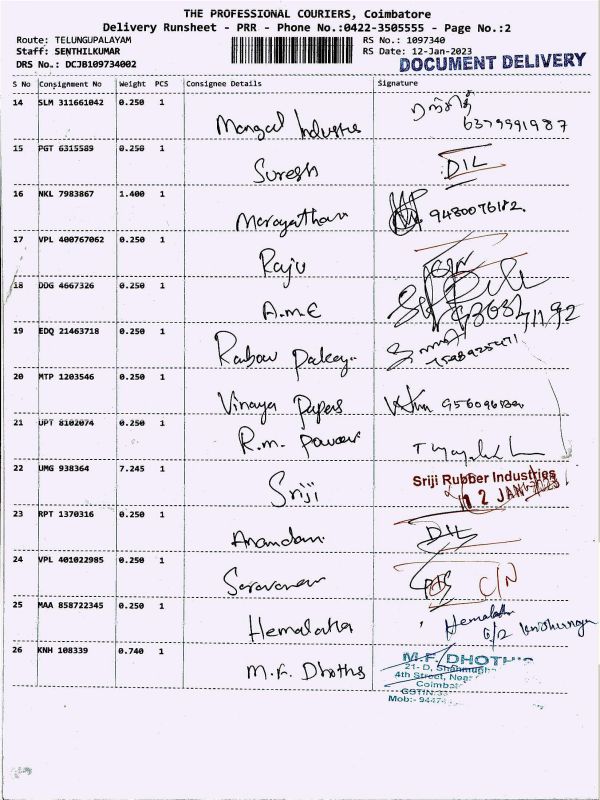 THE PROFESSIONAL COURIERS, Coimbatore
Delivery Runsheet - PRR - Phone No.:0422-3505555 - Page No.:2
Route: TELUNGUPALAYAM RS No.: 1097340
Staff: SENTHILKUMAR RS Date: 12-Jan-2023
DRS No.: DCJB109734002 DOCUMENT DELIVERY
S No Consignment No Weight PCS Consignee Details Signature
14 SLM 311661042 0.250 1 Mangal Industries 6379991987
15 PGT 6315589 0.250 1 Suresh DIL
16 NKL 7983867 1.400 1 9480076182
17 VPL 400767062 0.250 1 Raju
18 DDG 4667326 0.250 1 A.M.E
19 EDQ 21463718 0.250 1
20 MTP 1203546 0.250 1 Vinaya Papers
21 UPT 8102074 0.250 1 R.m. Power
22 UMG 938364 7.245 1 Sriji Sriji Rubber Industries
12 JAN 2023
23 RPT 1370316 0.250 1 Anandan DIL
24 VPL 401022985 0.250 1 Saravanan C/N
25 MAA 858722345 0.250 1 Hemalatha Hemalatha
26 KNH 108339 0.740 1 M.F. Dhotis M.F. DHOTIS
21- D,
4th Street,
GSTIN:33